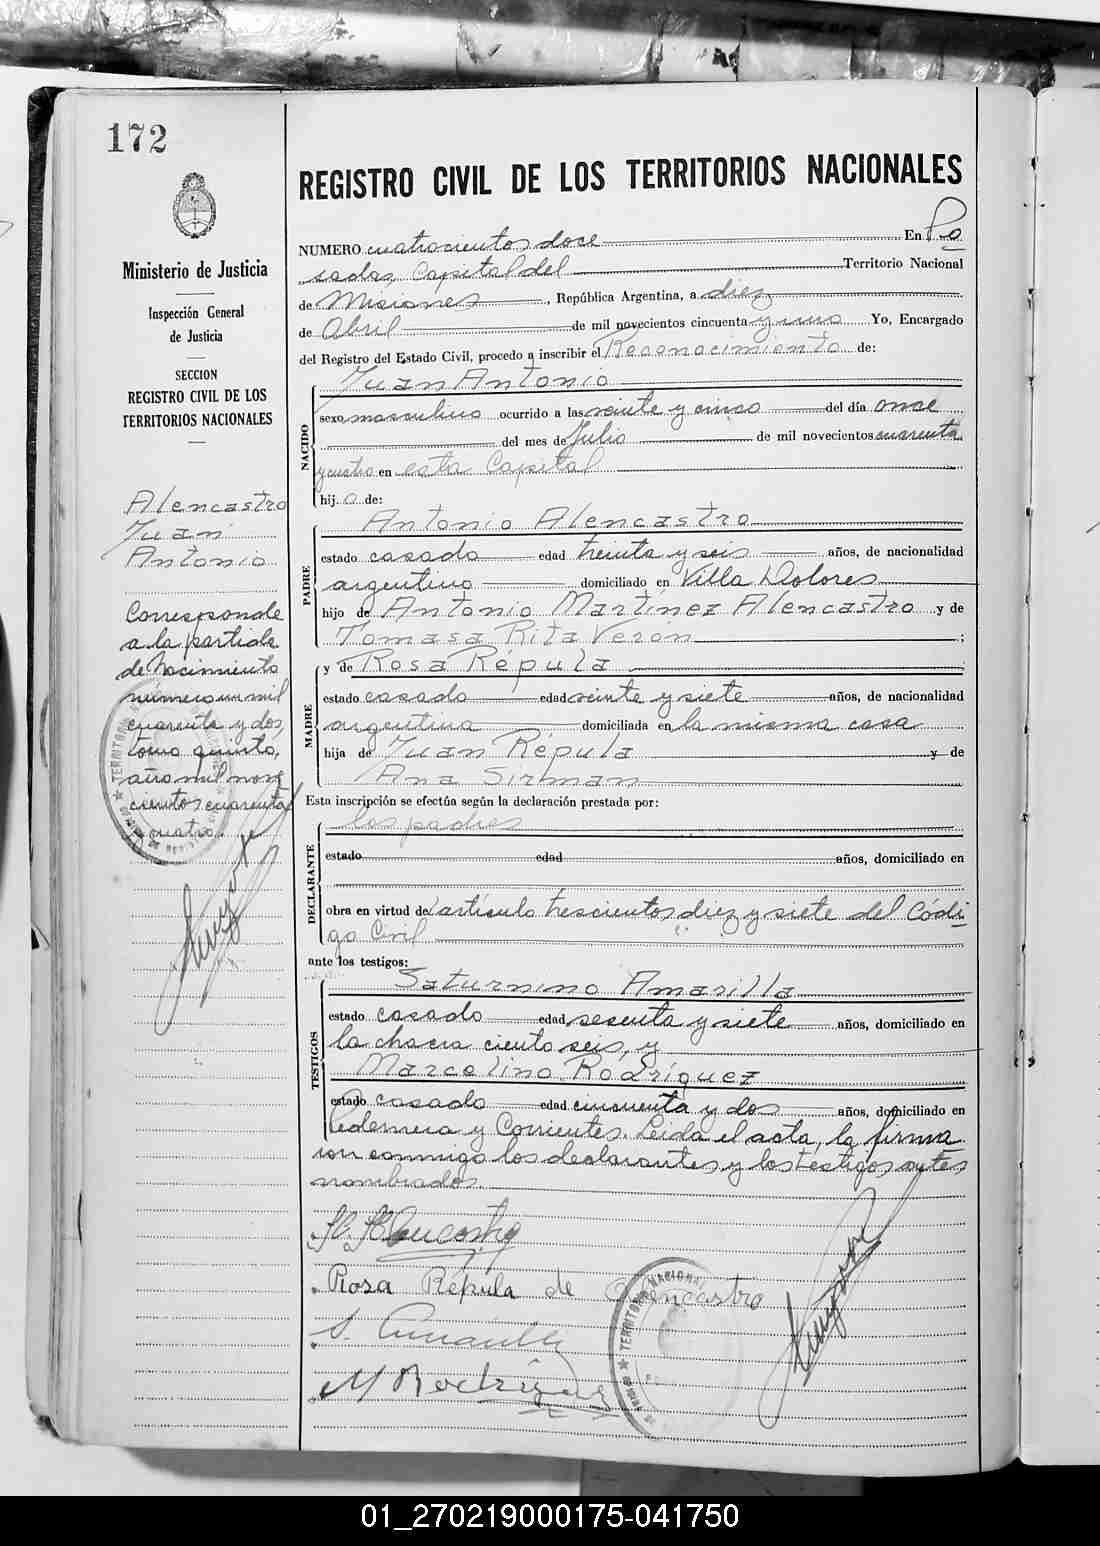 172
Ministerio de Justicia
Inspección General
de Justicia
SECCION
REGISTRO CIVIL DE LOS
TERRITORIOS NACIONALES
Alencastro
Juan
Antonio
Corresponde
a la partida
de Nacimiento
número un mil
cuarenta y dos,
tomo quinto,
año mil nove
cientos cuarenta
y cuatro.
REGISTRO CIVIL DE LOS TERRITORIOS NACIONALES
NUMERO cuatrocientos doce En Po
sadas, Capital del Territorio Nacional
de Misiones, República Argentina, a diez
de Abril de mil novecientos cincuenta y uno Yo, Encargado
del Registro del Estado Civil, procedo a inscribir el Reconocimiento de:
NACIDO
Juan Antonio
sexo masculino ocurrido a las veinte y cinco del día once
del mes de Julio de mil novecientos cuarenta
y cuatro en esta Capital
hij o de:
PADRE
Antonio Alencastro
estado casado edad treinta y seis años, de nacionalidad
argentino domiciliado en Villa Dolores
hijo de Antonio Martínez Alencastro y de
Tomasa Rita Verón ;
MADRE
y de Rosa Répula
estado casado edad veinte y siete años, de nacionalidad
argentina domiciliada en la misma casa
hija de Juan Répula y de
Ana Sirman
Esta inscripción se efectúa según la declaración prestada por:
DECLARANTE
los padres
estado edad años, domiciliado en
obra en virtud del artículo trescientos diez y siete del Códi
go Civil
ante los testigos:
TESTIGOS
Saturnino Amarilla
estado casado edad sesenta y siete años, domiciliado en
la chacra ciento seis, y
Marcelino Rodríguez
estado casado edad cincuenta y dos años, domiciliado en
Ledesma y Corrientes. Leida el acta, la firma
ron conmigo los declarantes y los testigos antes
nombrados.
Rosa Répula de Alencastro
S. Amarilla
M Rodríguez
TERRITORIO NACIONAL
01_270219000175-041750